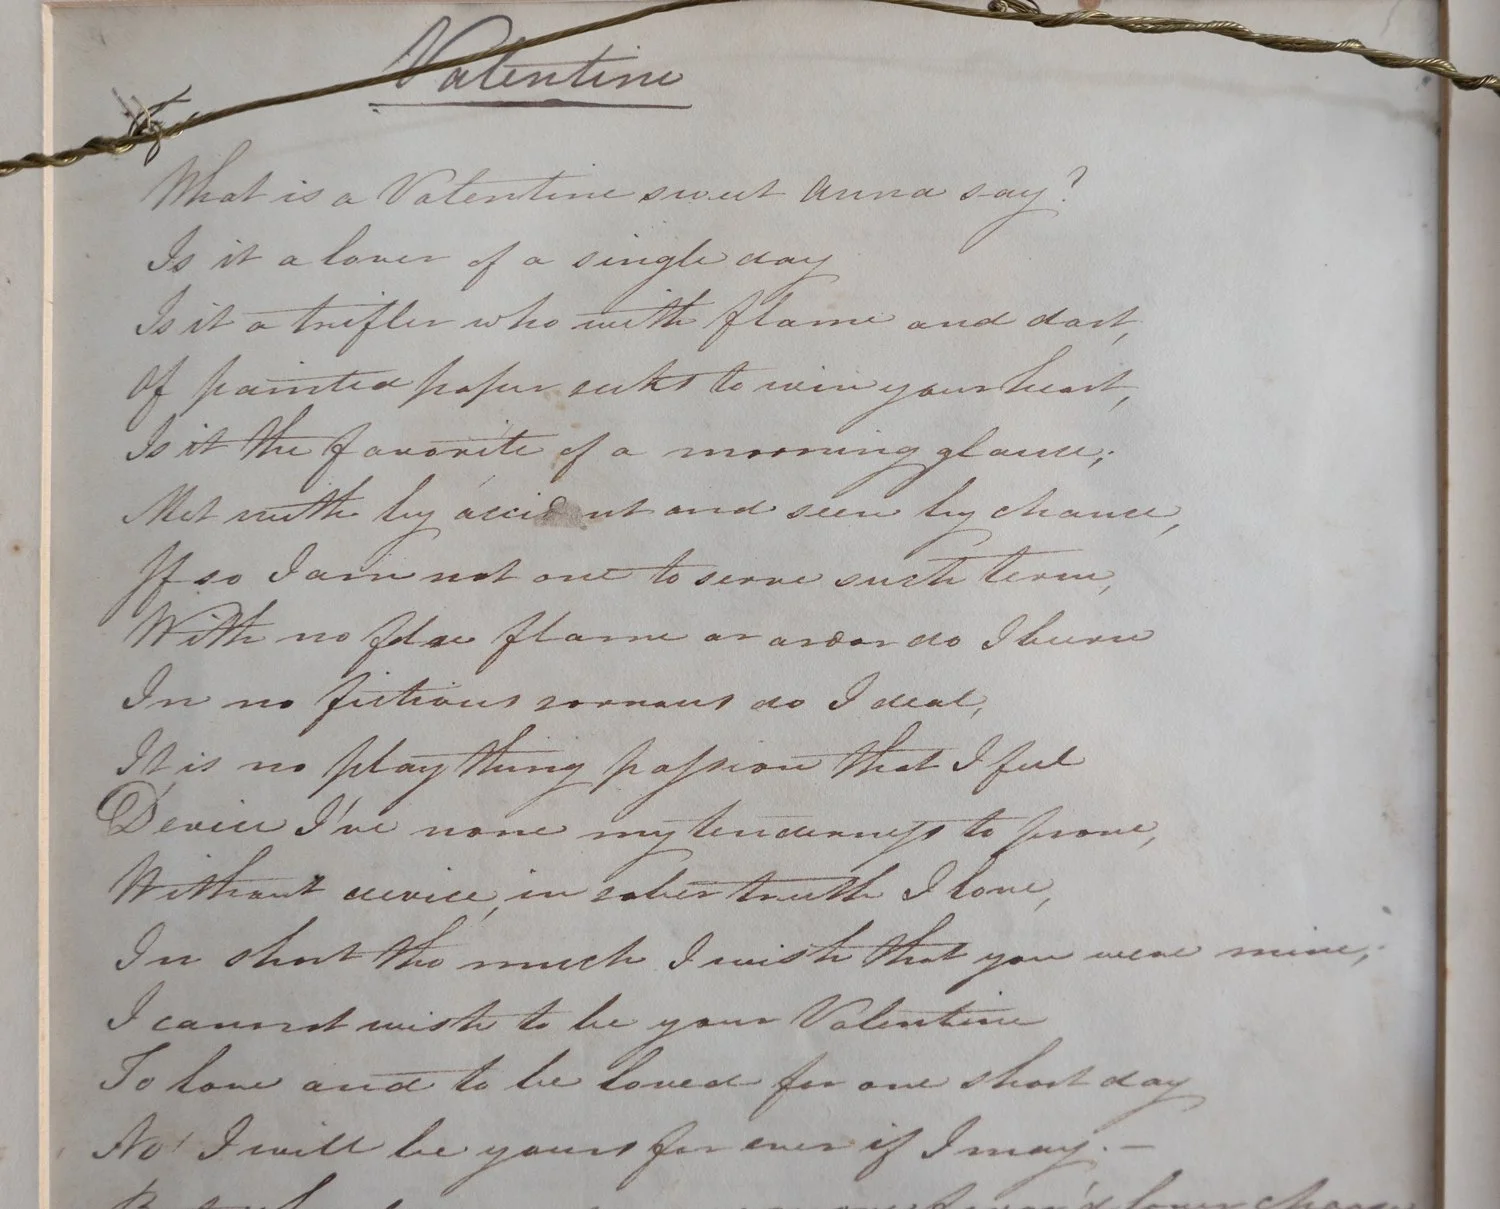 Valentine
What is a Valentine sweet Anna say?
Is it a lover of a single day
Is it a trifler who with flame and dart,
Of painted paper seeks to win your heart,
Is it the favorite of a morning glance;
Met with by accident and seen by chance,
If so I am not one to serve such term,
With no false flame or ardor do I burn
In no fictious sorrows do I deal,
It is no play thing passion that I feel
Device I've none my tenderness to prove,
Without device, in sober truth I love,
In short tho much I wish that you were mine,
I cannot wish to be your Valentine
To love and to be loved for one short day
No! I will be yours for ever if I may. —
lover choose